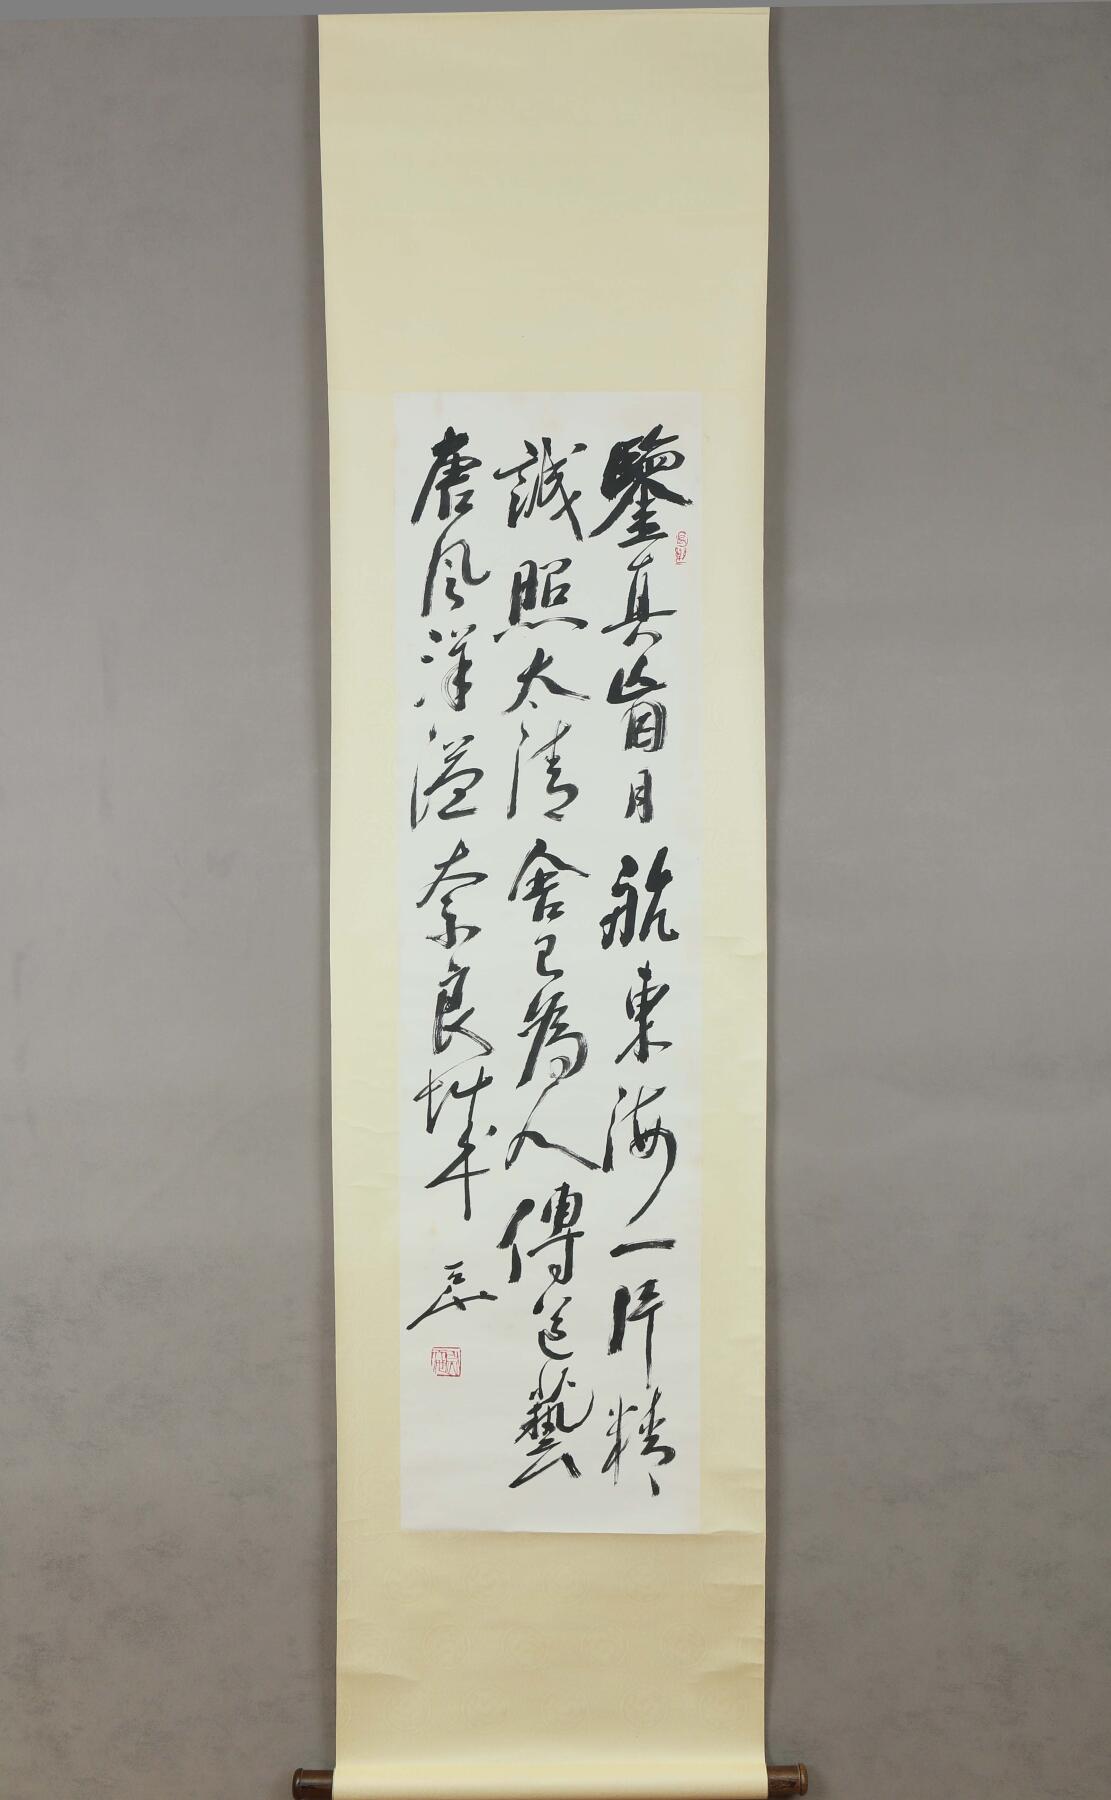 鑒真盲目航東海一片精
誠照太清舍己為人傳道藝
唐风洋溢奈良城